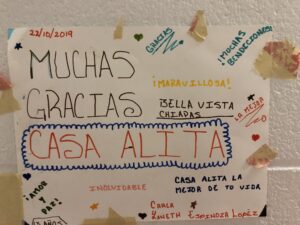 22/10/2019
GRACIAS
¡MUCHAS
BENDICIONES!
MUCHAS
GRACIAS
¡MARAVILLOSA!
BELLA VISTA
CHIAPAS
LA MEJOR
CASA ALITA
¡AMOR
Y
PAZ!
INOLVIDABLE
CASA ALITA LA
MEJOR DE TU VIDA
CARLA
ESPINOZA LÓPEZ
AÑOS